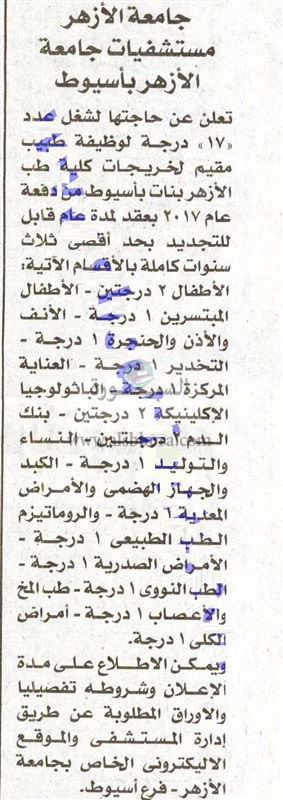 جامعة الأزهر
مستشفيات جامعة
الأزهر بأسيوط
تعلن عن حاجتها لشغل عدد
«١٧» درجة لوظيفة طبيب
مقيم لخريجات كلية طب
الأزهر بنات بأسيوط من دفعة
عام ٢٠١٧ بعقد لمدة عام قابل
للتجديد بحد أقصى ثلاث
سنوات كاملة بالأقسام الآتية:
الأطفال ٢ درجتين - الأطفال
المبتسرين ١ درجة - الأنف
والأذن والحنجرة ١ درجة -
التخدير ١ درجة - العناية
المركزة ١ درجة - الباثولوجيا
الإكلينيكة ٢ درجتين - بنك
درجتين - النساء
والتوليد ١ درجة - الكبد
والجهاز الهضمى والأمراض
المعدية ٦ درجة - والروماتيزم
الطب الطبيعى ١ درجة -
الأمراض الصدرية ١ درجة -
الطب النووى ١ درجة - طب المخ
والأعصاب ١ درجة - أمراض
الكلى ١ درجة.
ويمكن الاطلاع على مدة
الإعلان وشروطه تفصيليا
والاوراق المطلوبة عن طريق
إدارة المستشفى والموقع
الاليكترونى الخاص بجامعة
الأزهر - فرع أسيوط.